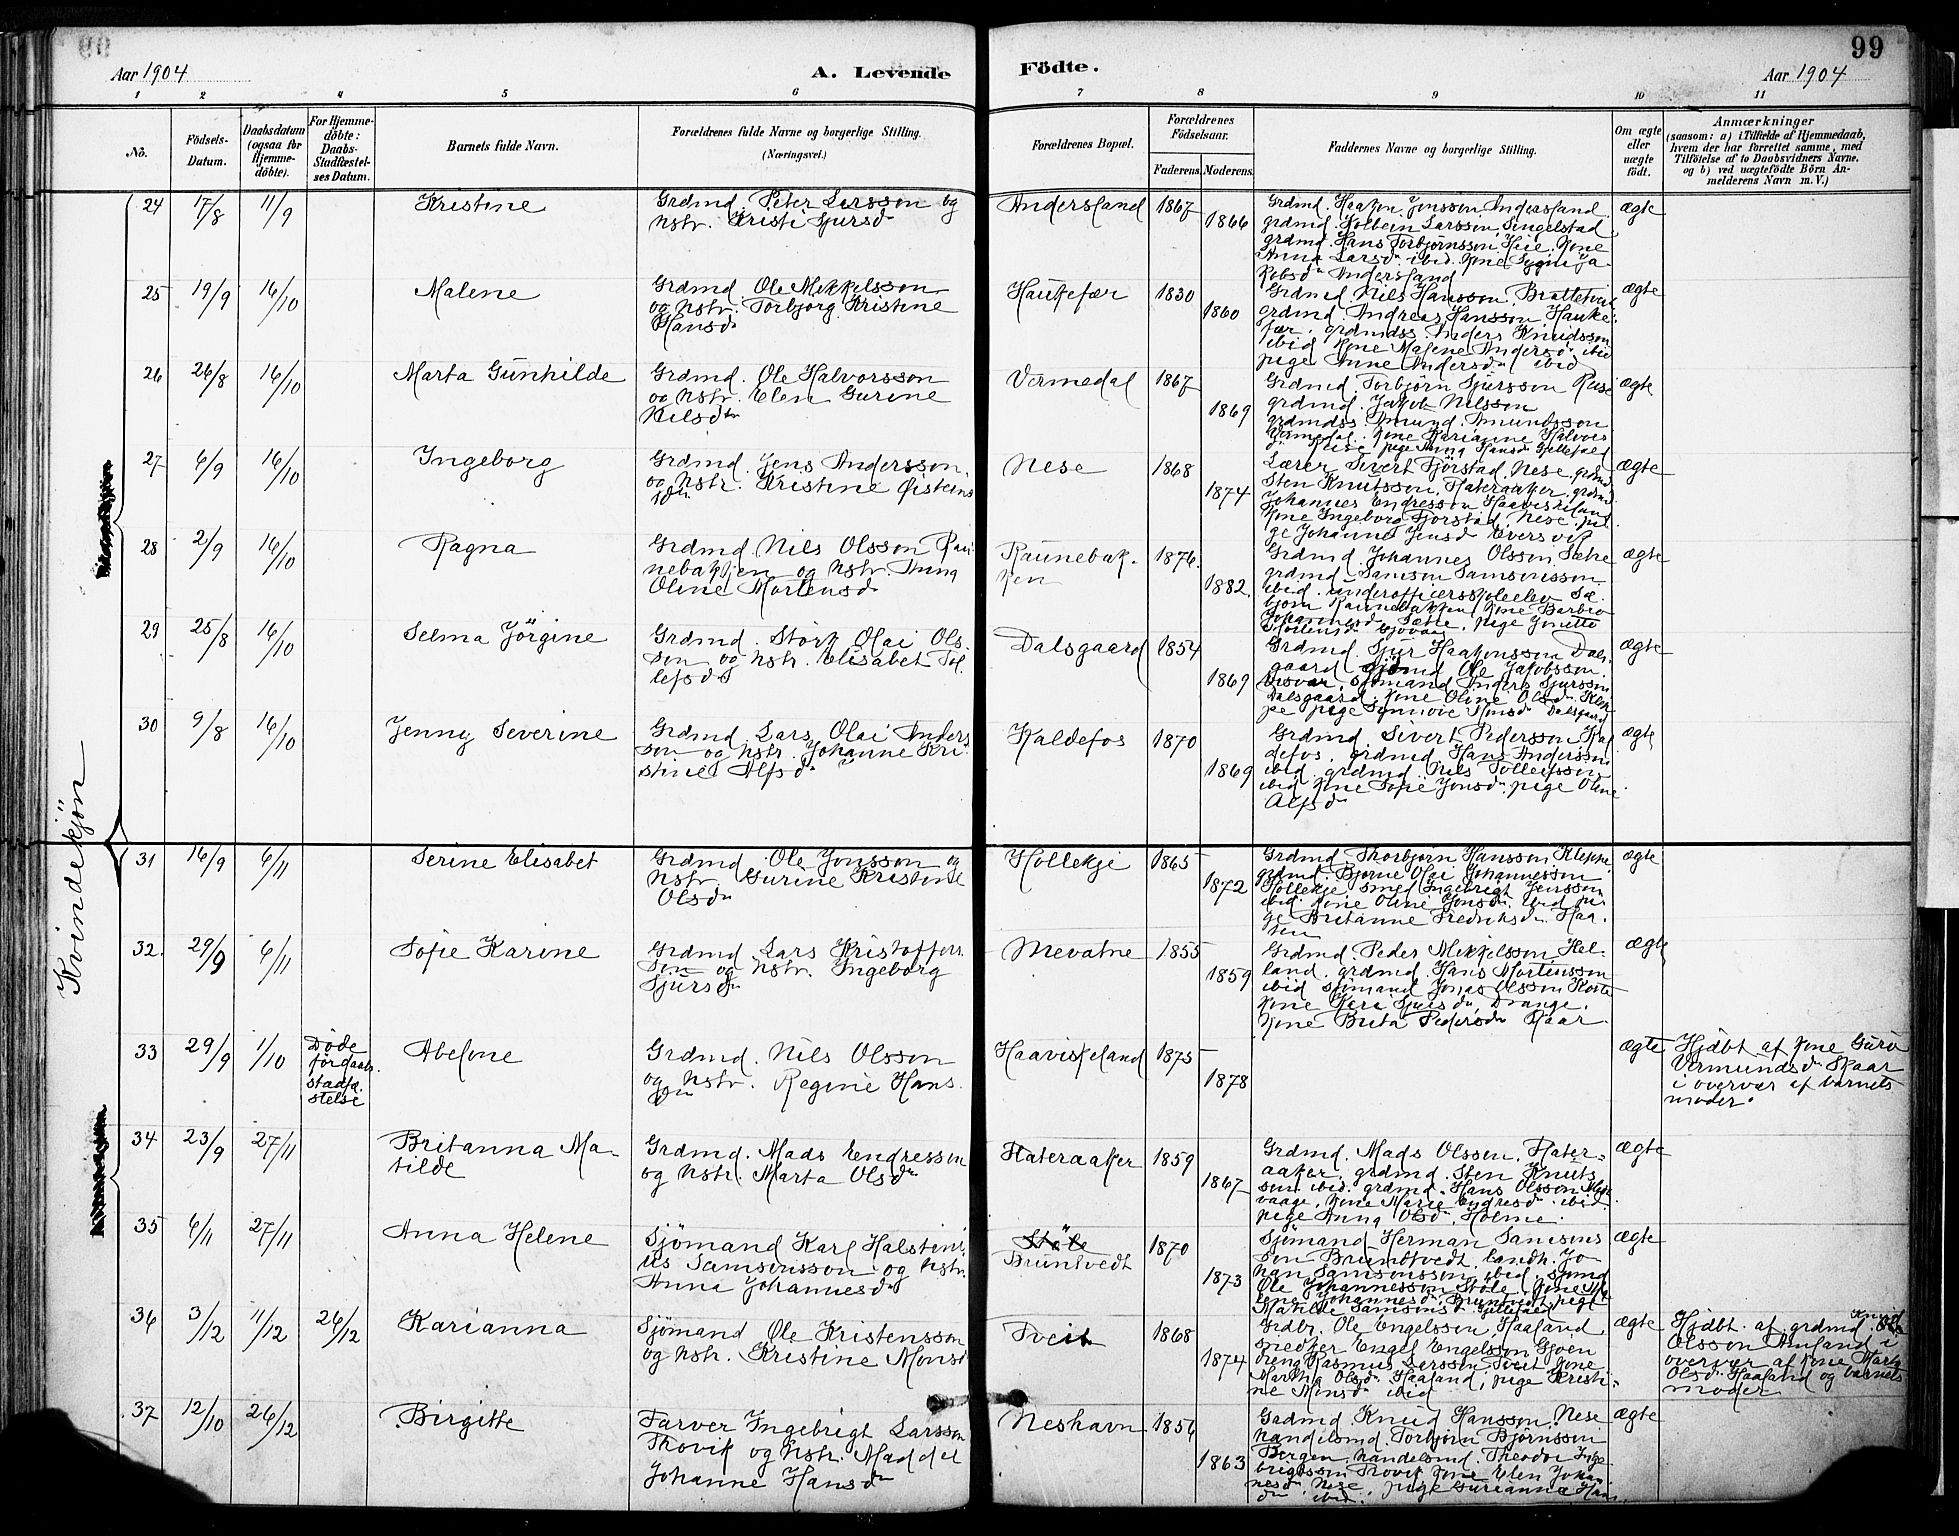 99
Aar 1904
A. Levende Födte.
Aar 1904
1 2 3 4 5 6 7 8 9 10 11
No.
Födsels-
Datum.
Daabsdatum
(ogsaa for
Hjemme-
döbte).
For Hjemme-
döbte:
Daabs-
Stadfæstel-
ses Datum.
Barnets fulde Navn.
Forældrenes fulde Navne og borgerlige Stilling.
(Næringsvei.)
Forældrenes Bopæl.
Forældrenes
Födselsaar.
Faderens. Moderens.
Faddernes Navne og borgerlige Stilling.
Om ægte
eller
uægte
födt.
Anmærkninger
(saasom: a) i Tilfælde af Hjemmedaab,
hvem der har forrettet samme, med
Tilföielse af to Daabsvidners Navne,
og b) ved uægtefödte Börn An-
melderens Navn m. V.)
Kvindekjøn
24 17/8 11/9 Kristine
Grdmd. Peter Larsson og
hstr. Kristi Sjursdr
Andersland 1867 1866
Grdmd. Haakon Jonsson Andersland
grdmd. Kolbein Larsson Singelstad
grdmd Hans Torbjørnsson Heie. Kone
Anna Larsdr ibid. Kone
Andersland
ægte
25 19/9 16/10 Malene
Grdmd. Ole Mikkelsson
og hstr. Torbjørg Kristine
Hansdr
Haukefær 1830 1860
Grdmd Nils Hansson Brattetveit
grdmd Andreas Hansson Hauke-
fær. grdmdss Anders Knudsson
ibid Kone Malene Andersdr ibid
pige Anne Andersdr ibid
ægte
26 26/8 16/10 Marta Gunhilde
Grdmd. Ole Halvorsson
og hstr. Elen Gurine
Nilsdtr
Vermedal 1867 1869
Grdmd Torbjörn Sjursson
grdmd. Jakob Nilsson
grdmdss Amund Amundsson
Vermedal. Kone Karianne Halvors
pige Anna Hansdr
ægte
27 6/9 16/10 Ingeborg
Grdmd. Jens Andersson
og hstr. Kristine Øisteins
dtr
Nese 1868 1874
Lærer Sivert Fjörstad Nese, grdmd
Sten Knutsson, Hateraaker, grdmd
Johannes Endresson Haaviskeland
Kone Ingeborg Fjörstad, Nese, pi-
ge Johanne Jensdr Eversvik
ægte
28 2/9 16/10 Ragna
Grdmd. Nils Olsson Rau-
nebakken og hstr. Anna
Oline Mortensdr
Raunebak-
ken 1876 1882
Grdmd Johannes Olsson Sætre
grdmd Samson Samsonsson
ibid. underofficersskoleelev Sæ-
bjørn Raunebakken Kone Barbro
Johannesdr Sætre. pige Jonette
Mortensdr
ægte
29 25/8 16/10 Selma Jörgine
Grdmd. Störk Olai Ols-
son og hstr. Elisabet Tol-
lefsdr
Dalsgaard 1854 1869
Grdmd. Sjur Haakonsson Dals-
gaard Ole Jakobsson
sjömand Anders Sjursson
Dalsgaard, Kone Oline Olsdr Klep-
pe pige Dalsgaard
ægte
30 9/8 16/10 Jenny Severine
Grdmd. Lars Olai Anders
son og hstr. Johanne Kri-
stine Alfsdr
Kaldefos 1870 1869
Grdmd Sivert Pedersson Kal
defos, grdmd. Hans Andersson
ibid. grdmd Nils Tolleifsson
ibid Kone Sofie Jonsdr. pige Oline
Alfsdr
ægte
31 16/9 6/11 Serine Elisabet
Grdmd. Ole Jonsson og
hstr. Gurine Kristine
Olsdr
Hollekje 1865 1872
Grdmd Thorbjørn Hansson Kleppe
grdmd. Bjørne Olai Johannesson
Hollekje. smed Ingebrigt Jensson
ibid. Kone Oline Jonsdr. ibid pi-
ge Britanne Fredriksdr Haa-
sten
ægte
32. 29/9 6/11 Sofie Karine
Grdmd Lars Kristoffers
son og hstr. Ingeborg
Sjursdr
Mevatne 1855 1859
Grdmd. Peder Mikkelsson Hel-
land. grdmd. Hans Mortensson
ibid sjömand Jonas Olsson
Kone Kari Sjursdr Drange.
Kone Brita Pedersdr Skaar
ægte
33 29/9 1/10 Döde
för daabs-
stadfæ-
stelse
Abelone
Grdmd. Nils Olsson
og hstr. Regine Hans
dtr
Haaviskeland 1875 1878
ægte
Hjdbt af Kone Guro
Vermundsdr Skaar
i overvær af barnets
moder.
34 23/9 27/11 Britanna Ma-
tilde
Grdmd. Mads Endresson
og hstr. Marta Olsdr
Hateraaker 1859 1867
Grdmd. Mads Olsson. Hater-
aaker, grdmd. Sten Knuts
son ibid. grdmd. Hans Olsson
vaage, Kone Marie Endresdr ibid
pige Anna Olsdr Holme.
ægte
35 6/11 27/11 Anna Helene
Sjömand Karl Halstini
us Samsonsson og hstr.
Anna Johannesdr
Stöle
Bruntvedt 1870 1873
Sjömand Herman Samsons
son Brundtvedt. landh. Jo-
han Samsonsson ibid. sjmnd
Ole Johannesson Stöle, Kone
Johannesdr Bruntvedt, pige
Matilde Samsonsdr
ægte
36 3/12 11/12 26/12 Karianna
Sjömand Ole Kristensson
og hstr. Kristine Monsdr
Tveit 1868 1874
Grdbr. Ole Engelsson Haaland
snedker Engel Engelsson Gjøen
dreng Rasmus Larsson Tveit Kone
Martha Olsdr Haaland, pige Kristi-
ne Monsdr ibid
ægte
Hjdbt. af grdmd. Knud
Olsson Amland i
overvær af Kone Marta
Olsdr Haaland og barnets
moder
37 12/10 26/12 Birgitte
Farver Ingebrigt Larsson
Thovik og hstr. Maddel
Johanne Hansdr
Neshavn 1856 1863
Grdmd Knud Hansson, Nese
handelsmd. Torbjörn Björnsson
Bergen, handelsmd. Theodor Inge-
brigtsson Thovik Kone Elen Johan-
nesdr Nese, pige Gurianna Hans
dtr ibid.
ægte